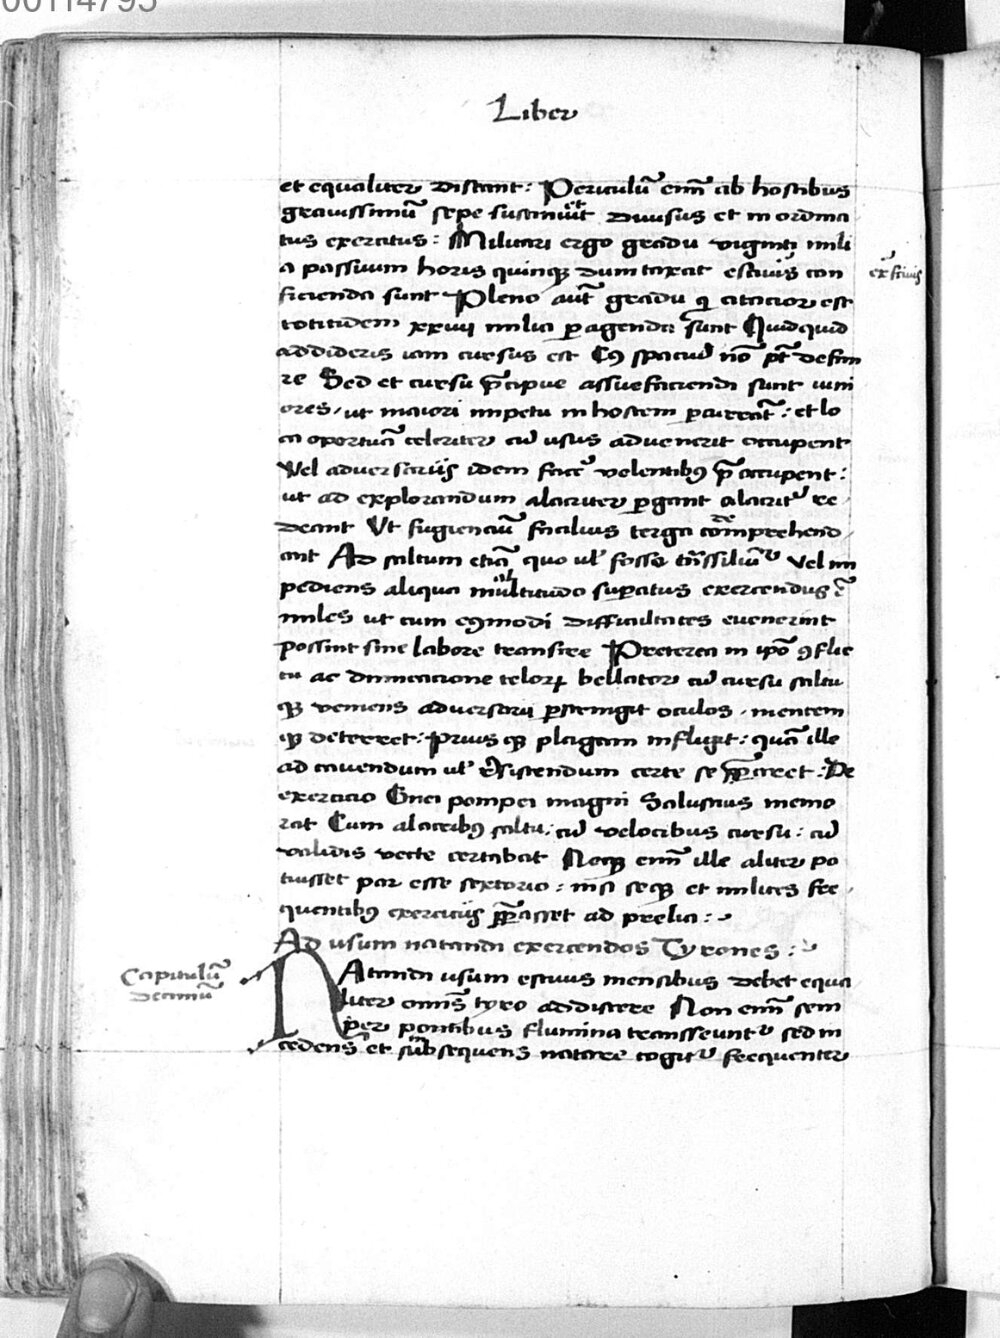 00114795
Liber
et equaliter distant: Periculũ enĩ ab hostibus
grauissimũ sepe sustinuit diuisus et in ordina
tus exercitus: Militari ergo gradu viginti mili
a passuum horis quinqꝫ dumtaxat estiuis con
ficienda sunt Pleno aut̃ gradu q̇ citacior est
totitidem xxiiij milia ꝑagenda sunt Quidquid
addideris iam cursus est Cꝰ spaciũ nõ pt̃ defini
re Sed et cursu p̃cipue assuefaciendi sunt iuni
ores, ut maiori impetu in hostem ꝓcurrãt: et lo
ca oportuã celeriter cũ usus aduenerit occupent
Vel aduersariis idem facẽ volentibꝰ p̃occupent:
ut ad explorandum alacriter ꝑgant alacritˀ re
deant Ut fugienciũ facilius terga comprehend
ant Ad saltum etiã quo ul̃ fosse tñssiliunť vel im
pediens aliqua multitudo suꝑatus exercendus ẽ
miles ut cum eꝰmodi difficultates euenerint
possint sine labore transire Preterea in ip̃o ꝯflic
tu ac dimicacione telorꝝ bellator cũ cursu saltu
qꝫ veniens aduersarii ꝑstringit oculos, mentem
qꝫ deterret: Priusqꝫ plagam infligit: quã ille
ad cauendum ul̃ resistendum certe se p̃paret: De
exercicio Gnei pompei magni Salustius memo
rat Cum alacribꝰ saltu, cũ velocibus cursu: cũ
validis vecte certabat Neqꝫ enĩ ille aliter po
tuisset par esse sextorio: nisi seqꝫ et milites fre
quentibꝰ exerciciis p̃parasset ad prelia:
Ad usum natandi exercendos Tyrones:
Natandi usum estiuis mensibus debet equa
liter omnis tyro addiscere Non enĩ sem
per pontibus flumina transseuntˀ sed in
cedens et subsequens natare cogitˀ frequenter
Capitulũ
decimũ